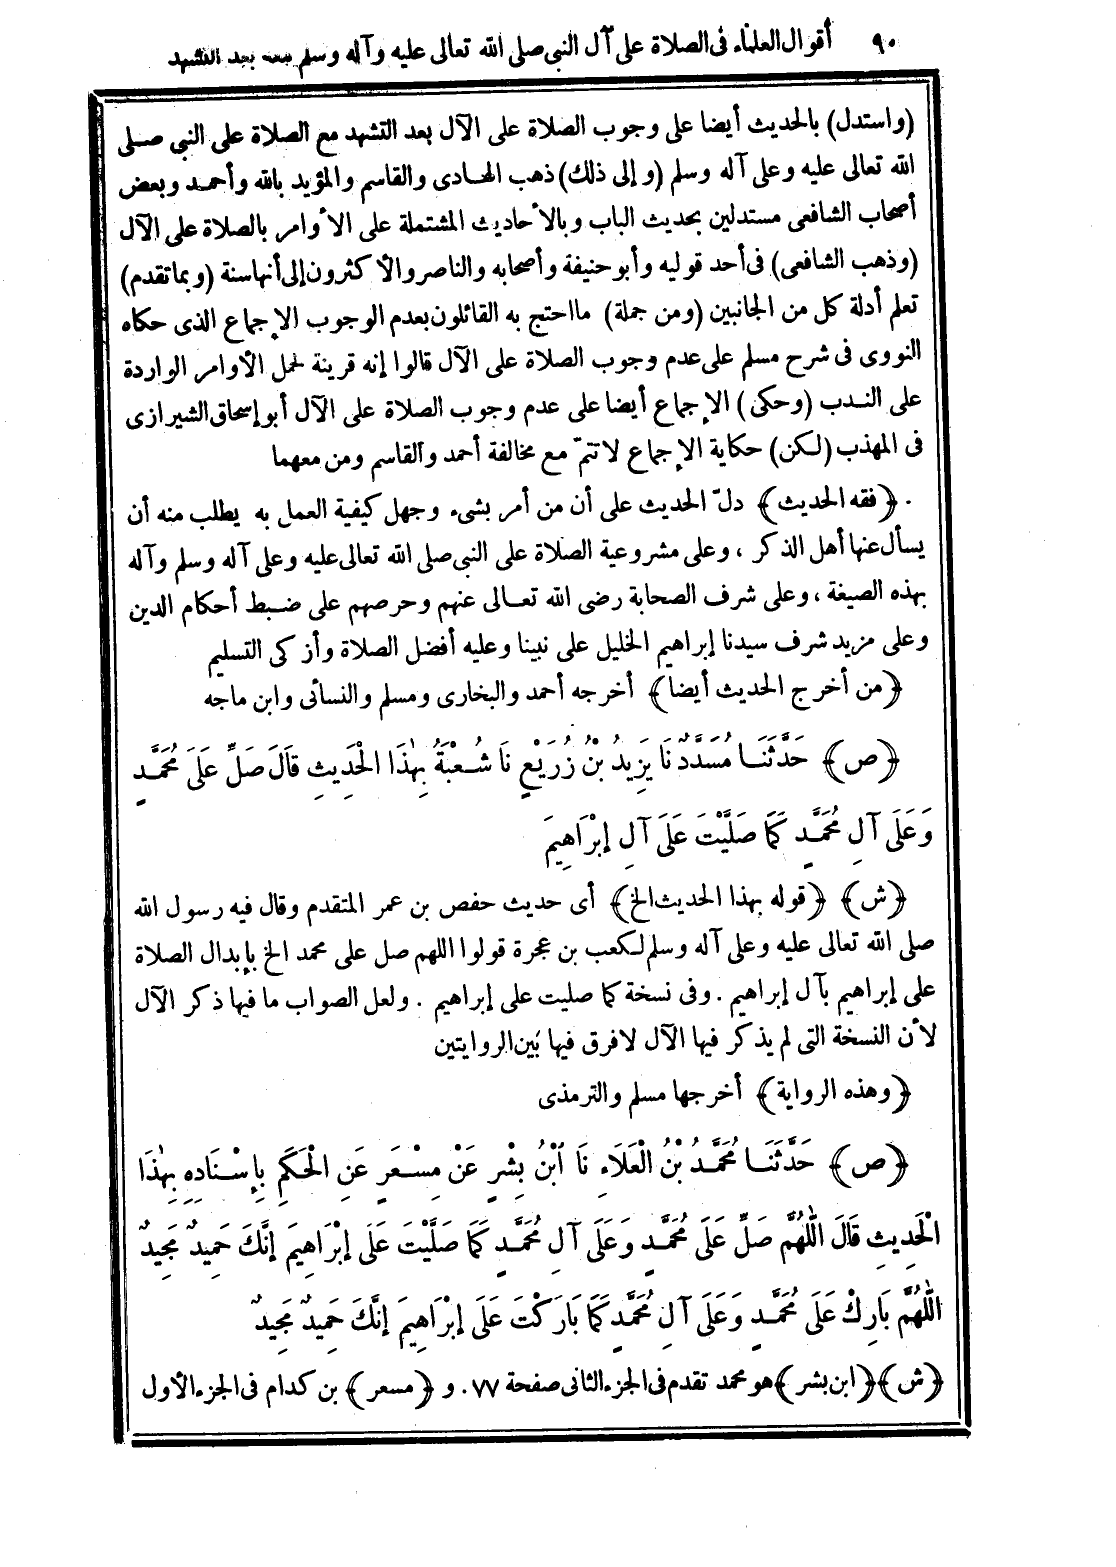 ٩٠ أقوال العلماء فى الصلاة على آل النبى صلى الله تعالى عليه وآله وسلم معه بعد التشهد
(واستدل) بالحديث أيضا على وجوب الصلاة على الآل بعد التشهد مع الصلاة على النبى صلى
الله تعالى عليه وعلى آله وسلم (وإلى ذلك) ذهب الهادى والقاسم والمؤيد بالله وأحمد وبعض
أصحاب الشافعى مستدلين بحديث الباب وبالأحاديث المشتملة على الأوامر بالصلاة على الآل
(وذهب الشافعى) فى أحد قوليه وأبو حنيفة وأصحابه والناصر والأكثرون إلى أنها سنة (وبما تقدم)
تعلم أدلة كل من الجانبين (ومن جملة) ما احتج به القائلون بعدم الوجوب الإجماع الذى حكاه
النووى فى شرح مسلم على عدم وجوب الصلاة على الآل قالوا إنه قرينة لحمل الأوامر الواردة
على الندب (وحكى) الإجماع أيضا على عدم وجوب الصلاة على الآل أبو إسحاق الشيرازى
فى المهذب (لكن) حكاية الإجماع لا تتمّ مع مخالفة أحمد والقاسم ومن معهما
. ﴿فقه الحديث﴾ دلّ الحديث على أن من أمر بشىء وجهل كيفية العمل به يطلب منه أن
يسأل عنها أهل الذكر ، وعلى مشروعية الصلاة على النبى صلى الله تعالى عليه وعلى آله وسلم وآله
بهذه الصيغة ، وعلى شرف الصحابة رضى الله تعالى عنهم وحرصهم على ضبط أحكام الدين
وعلى مزيد شرف سيدنا إبراهيم الخليل على نبينا وعليه أفضل الصلاة وأزكى التسليم
﴿من أخرج الحديث أيضا﴾ أخرجه أحمد والبخارى ومسلم والنسائى وابن ماجه
﴿ص﴾ حَدَّثَنَا مُسَدَّدٌ نَا يَزِيدُ بْنُ زُرَيْعٍ نَا شُعْبَةُ بِهٰذَا الْحَدِيثِ قَالَ صَلِّ عَلَى مُحَمَّدٍ
وَعَلَى آلِ مُحَمَّدٍ كَمَا صَلَّيْتَ عَلَى آلِ إِبْرَاهِيمَ
﴿ش﴾ ﴿قوله بهذا الحديث الخ﴾ أى حديث حفص بن عمر المتقدم وقال فيه رسول الله
صلى الله تعالى عليه وعلى آله وسلم لكعب بن عجرة قولوا اللهم صل على محمد الخ بإبدال الصلاة
على إبراهيم بآل إبراهيم . وفى نسخة كما صليت على إبراهيم . ولعل الصواب ما فيها ذكر الآل
لأن النسخة التى لم يذكر فيها الآل لا فرق فيها بين الروايتين
﴿وهذه الرواية﴾ أخرجها مسلم والترمذى
﴿ص﴾ حَدَّثَنَا مُحَمَّدُ بْنُ الْعَلَاءِ نَا ابْنُ بِشْرٍ عَنْ مِسْعَرٍ عَنِ الْحَكَمِ بِإِسْنَادِهِ بِهٰذَا
الْحَدِيثِ قَالَ اللّٰهُمَّ صَلِّ عَلَى مُحَمَّدٍ وَعَلَى آلِ مُحَمَّدٍ كَمَا صَلَّيْتَ عَلَى إِبْرَاهِيمَ إِنَّكَ حَمِيدٌ مَجِيدٌ
اللّٰهُمَّ بَارِكْ عَلَى مُحَمَّدٍ وَعَلَى آلِ مُحَمَّدٍ كَمَا بَارَكْتَ عَلَى إِبْرَاهِيمَ إِنَّكَ حَمِيدٌ مَجِيدٌ
﴿ش﴾ ﴿ابن بشر﴾ هو محمد تقدم فى الجزء الثانى صفحة ٧٧. و ﴿مسعر﴾ بن كدام فى الجزء الأول